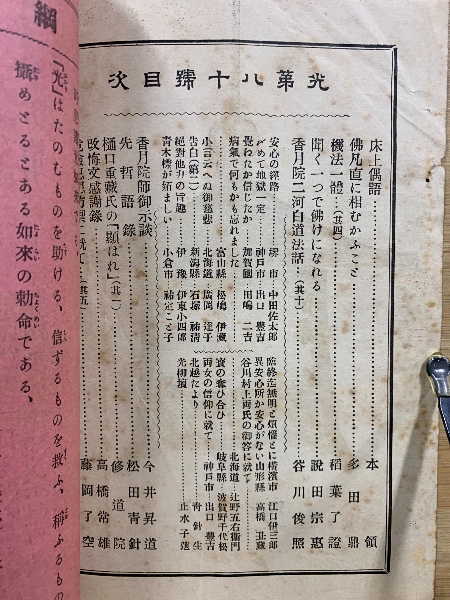 光第八十號目次
床上偶語 本領
佛凡直に相むかふこと 多田鼎
機法一體(其四) 稻葉了證
聞く一つで佛けになれる 説田宗惠
香月院二河白道法話(其十) 谷川俊照
安心の經路 堺市 中田佐太郎
〆めて地獄一定 神戸市 出口豊吉
覺わたか信じたか 加賀國 田嶋二吉
病氣で何もかも忘れました 富山縣 松嶋伊藏
小言云へぬ御慈悲 北海道 廣岡達子
告白(第二) 新潟縣 石塚祐清
絕對他力の旨趣 伊豫 伊東小四郎
青木樣が妬ましい 小倉市 祐定こと子
臨終迄無明と煩惱とに 横濱市 江口伊三郎
異安心所か安心がない 山形縣 高橋丑藏
谷川村上兩氏の御答に就て 北海道 辻野五右衞門
寶の奪ひ合ひ 岐阜縣 波賀野千代松
兩女の信仰に就て 神戸市 出口豊吉
北越たより 青針生
光柳擅 止水子選
香月院師御示談 今井昇道
先哲語錄 松田青針
樋口重藏氏の『顯はれ』(其一) 修道院
改悔文感謝錄 高橋常雄
(其五) 藤岡了空
綱
「光」はたのむものを助ける、信ずるものを救ふ、稱ふるもの
攝めとるとある如來の勅命である、